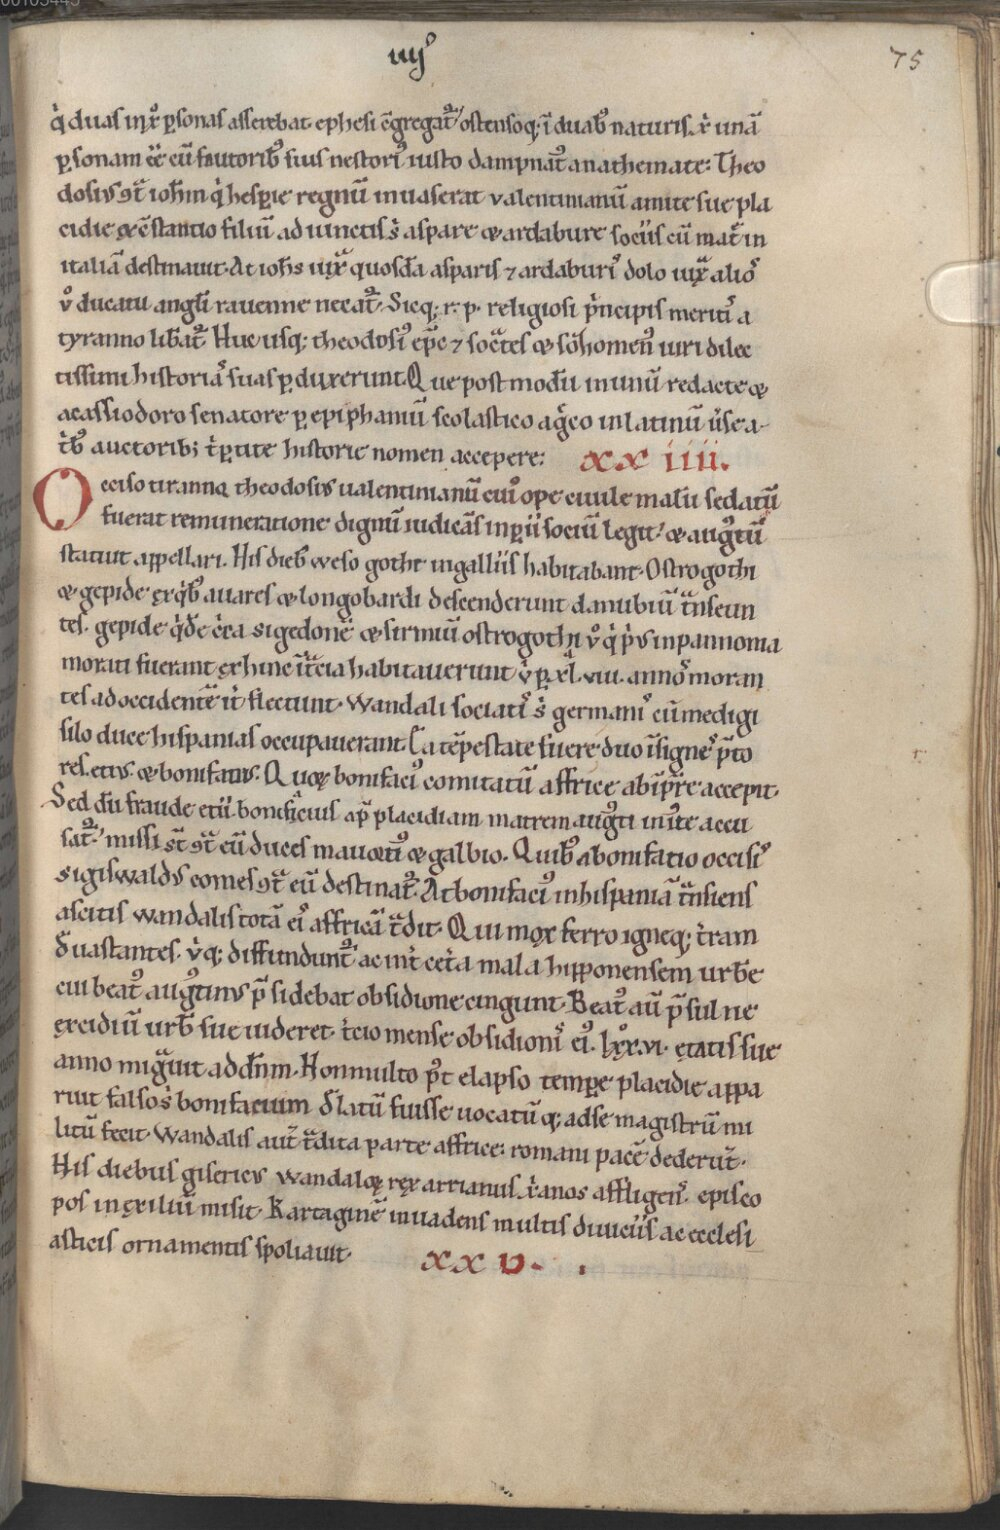 00103445
iiij°
75
q̇ duas in xp̄o ꝑsonas asserebat ephesi c̄gregat᷑ ostensoq; ī duab᷒ naturis xp̄i unā
ꝑsonam ēē cū fautorib᷒ suis nestori᷒ iusto dampnat᷒ anathemate: Theo
dosius ꝯt͂ ioh̄m q̇ hesperie regnū inuaserat valentinianū amite sue pla
cidie ⁊ c̄stantio filiū adiunctis s͛ aspare ⁊ ardabure sociis cū mat͛ in
italiā destinauit. At ioh̄s iux͂ quosdā asparis ⁊ ardaburi᷒ dolo iux͂ alios
v͛ ducatu angli rauenne necat᷑. Sicq; r. p. religiosi p͛ncipis meriti᷒ a
tyranno lib̄at᷑. Huc usq; theodosi᷒ ep̄c ⁊ soc͂tes ⁊ so͛homen᷒ uiri dilec
tissimi historiā suas ꝑduxerunt. Que postmodū in unū redacte ⁊
a cassiodoro senatore ꝑ epiphaniū scolastico a g͛co in latinū u͛se a
t͛b᷒ auctorib; t͛ꝑtite historie nomen accepere: xx iiii.
Occiso tiranno theodosius ualentinianū cui᷒ ope ciuile malū sedatū
fuerat remuneratione dignū iudicās inꝑii sociū legit ⁊ aug᷒tū
statuit appellari. His dieb᷒ weso gothi in galliis habitabant. Ostrogothi
⁊ gepide ex q͛b᷒ auares ⁊ longobardi descenderunt danubiū t͂nseun
tes. gepide q͛de c͛ca sigedonē ⁊ sirmiū ostrogothi v͛ q͛ p͛us in pannonia
morati fuerant ex hinc i t͂cia habitauerunt u͛ ꝑ xl. viii. anno᷒ moran
tes ad occidentē it͛ flectunt. Wandali sociati᷒ s͛ germani᷒ cū medigi
silo duce hispanias occupauerant. Ea tēpestate fuere duo īsigne᷒ p̄to
res. etius ⁊ bonifatius. Quoꝝ bonifaci᷒ comitatū affrice ab īp͛re accepit.
Sed dū fraude etii bonifacius ap̄ placidiam matrem aug᷒ti inu͛te accu
sat᷑ missi st̄ ꝯt͂ eū duces mauoti᷒ ⁊ galbio. Quib᷒ a bonifatio occisi᷒
sigiswaldus comes ꝯt͂ eū destinat᷑. At bonifaci᷒ in hispaniā t͂nsiens
ascitis wandalis totā ei᷒ affricā t͂dit. Qui mox ferro igneq; t͛ram
deuastantes. v͛q; diffundunt᷑ ac int͛ cet͛a mala hipponensem urbē
cui beat᷒ aug᷒tinus p̄sidebat obsidione cingunt. Beat᷒ aū p̄sul ne
excidiū urb᷒ sue uideret. t͛cio mense obsidioni᷒ ei᷒ lxx.vi. etatis sue
anno mig͂uit ad dn̄m. Non multo p᷒t elapso tempe placidie appa
ruit falso s͛ bonifacium d͛latū fuisse uocatūq; ad se magistrū mi
litū fecit. Wandalis aut͛ t͂dita parte affrice: romani pacē dederūt.
His diebus gisericus wandaloꝝ rex arrianus xp̄ianos affligens episco
pos in exiliū misit. Kartaginē inuadens multis diuiciis ac ecclesi
asticis ornamentis spoliauit. xx v.